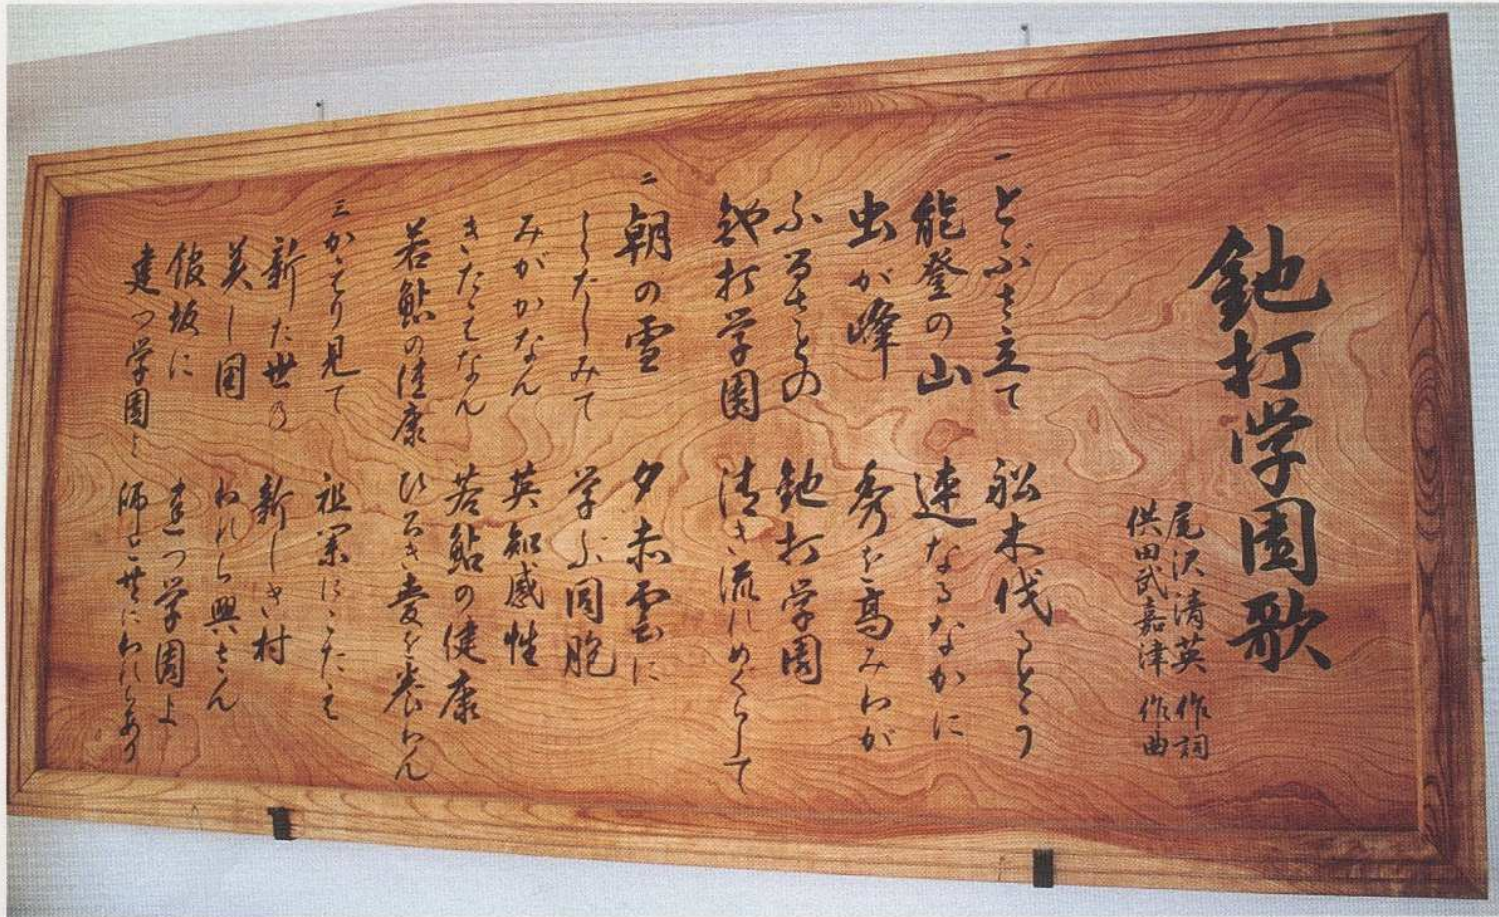 釶打学園歌
尾沢清英 作詞
供田武嘉津 作曲
一 とぶさ立て 舩木伐るとう
能登の山 連なるなかに
虫が峰 秀を高みわが
ふるさとの 釶打学園
釶打学園 清き流れめぐらして
二 朝の雪 夕赤雲に
したしみて 学ぶ同胞
みがかなん 英知感性
きたえなん 若鮎の健康
若鮎の健康 ひろき愛を養わん
三 かえり見て 祖業にこたえ
新た世の 新しき村
美し国 われら興さん
坂に 建つ学園よ
建つ学園よ 師と共にわれらあり